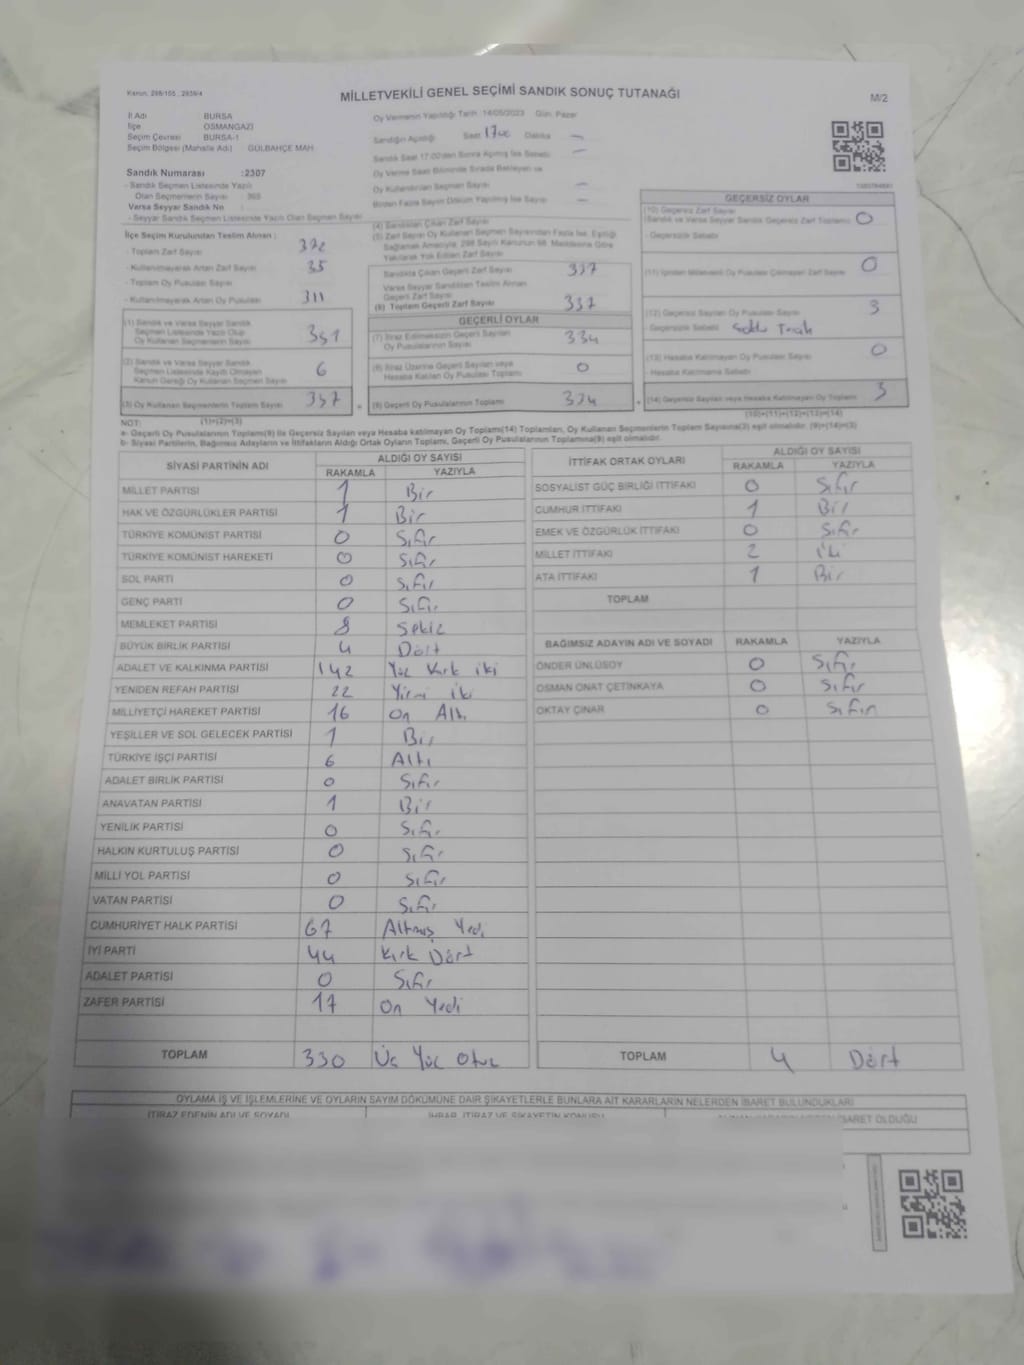 Kanun: 298/105 , 2839/4
MİLLETVEKİLİ GENEL SEÇİMİ SANDIK SONUÇ TUTANAĞI
M/2
İl Adı BURSA
İlçe OSMANGAZİ
Seçim Çevresi BURSA-1
Seçim Bölgesi (Mahalle Adı) GÜLBAHÇE MAH
Sandık Numarası :2307
- Sandık Seçmen Listesinde Yazılı
Olan Seçmenlerin Sayısı
Varsa Seyyar Sandık No
- Seyyar Sandık Seçmen Listesinde Yazılı Olan Seçmen Sayısı
Oy Vermenin Yapıldığı Tarih : 14/05/2023 Gün: Pazar
Sandığın Açıldığı Saat 17:00 Dakika —
Sandık Saat 17:00'den Sonra Açılmış İse Sebebi —
Oy Verme Saati Bitiminde Sırada Bekleyen ve
Oy Kullandırılan Seçmen Sayısı —
Birden Fazla Sayım Döküm Yapılmış İse Sayısı —
İlçe Seçim Kurulundan Teslim Alınan :
- Toplam Zarf Sayısı 372
- Kullanılmayarak Artan Zarf Sayısı 35
- Toplam Oy Pusulası
- Kullanılmayarak Artan Oy Pusulası 311
(1) Sandık ve Varsa Seyyar Sandık
Seçmen Listesinde Yazılı Olup
Oy Kullanan Seçmen Sayısı
(2) Sandık ve Varsa Seyyar Sandık
Seçmen Listesinde Kayıtlı Olmayan
Kanun Gereği Oy Kullanan Seçmen Sayısı 6
(3) Oy Kullanan Seçmenlerin Toplam Sayısı 337
(1)+(2)=(3)
(4) Sandıktan Çıkan Zarf Sayısı
(5) Zarf Sayısı Oy Kullanan Seçmen Sayısından Fazla İse, Eşitliği
Sağlamak Amacıyla, 298 Sayılı Kanunun 98. Maddesine Göre
Yakılarak Yok Edilen Zarf Sayısı
Sandıkta Çıkan Geçerli Zarf Sayısı 337
Varsa Seyyar Sandıktan Teslim Alınan
Geçerli Zarf Sayısı
(6) Toplam Geçerli Zarf Sayısı 337
GEÇERLİ OYLAR
(7) İtiraz Edilmeksizin Geçerli Sayılan
Oy Pusulalarının Sayısı 334
(8) İtiraz Üzerine Geçerli Sayılan veya
Hesaba Katılan Oy Pusulası Toplamı 0
(9) Geçerli Oy Pusulalarının Toplamı 334
GEÇERSİZ OYLAR
(10) Geçersiz Zarf Sayısı
(Sandık ve Varsa Seyyar Sandık Geçersiz Zarf Toplamı) 0
- Geçersizlik Sebebi
(11) İçinden Milletvekili Oy Pusulası Çıkmayan Zarf Sayısı 0
(12) Geçersiz Sayılan Oy Pusulası Sayısı 3
- Geçersizlik Sebebi
(13) Hesaba Katılmayan Oy Pusulası Sayısı 0
- Hesaba Katılmama Sebebi
(14) Geçersiz Sayılan veya Hesaba Katılmayan Oy Toplamı 3
(10)+(11)+(12)+(13)=(14)
NOT:
a- Geçerli Oy Pusulalarının Toplamı(9) ile Geçersiz Sayılan veya Hesaba Katılmayan Oy Toplamı(14) Toplamları, Oy Kullanan Seçmenlerin Toplam Sayısına(3) eşit olmalıdır. (9)+(14)=(3)
b- Siyasi Partilerin, Bağımsız Adayların ve İttifakların Aldığı Ortak Oyların Toplamı, Geçerli Oy Pusulalarının Toplamına(9) eşit olmalıdır.
SİYASİ PARTİNİN ADI ALDIĞI OY SAYISI
RAKAMLA YAZIYLA
MİLLET PARTİSİ 1 Bir
HAK VE ÖZGÜRLÜKLER PARTİSİ 1 Bir
TÜRKİYE KOMÜNİST PARTİSİ 0 Sıfır
TÜRKİYE KOMÜNİST HAREKETİ 0 Sıfır
SOL PARTİ 0 Sıfır
GENÇ PARTİ 0 Sıfır
MEMLEKET PARTİSİ 8 Sekiz
BÜYÜK BİRLİK PARTİSİ 4 Dört
ADALET VE KALKINMA PARTİSİ 142 Yüz Kırk iki
YENİDEN REFAH PARTİSİ 22 Yirmi iki
MİLLİYETÇİ HAREKET PARTİSİ 16 On Altı
YEŞİLLER VE SOL GELECEK PARTİSİ 1 Bir
TÜRKİYE İŞÇİ PARTİSİ 6 Altı
ADALET BİRLİK PARTİSİ 0 Sıfır
ANAVATAN PARTİSİ 1 Bir
YENİLİK PARTİSİ 0 Sıfır
HALKIN KURTULUŞ PARTİSİ 0 Sıfır
MİLLİ YOL PARTİSİ 0 Sıfır
VATAN PARTİSİ 0 Sıfır
CUMHURİYET HALK PARTİSİ 67 Altmış Yedi
İYİ PARTİ 44 Kırk Dört
ADALET PARTİSİ 0 Sıfır
ZAFER PARTİSİ 17 On Yedi
TOPLAM 330 Üç Yüz Otuz
İTTİFAK ORTAK OYLARI ALDIĞI OY SAYISI
RAKAMLA YAZIYLA
SOSYALİST GÜÇ BİRLİĞİ İTTİFAKI 0 Sıfır
CUMHUR İTTİFAKI 1 Bir
EMEK VE ÖZGÜRLÜK İTTİFAKI 0 Sıfır
MİLLET İTTİFAKI 2 iki
ATA İTTİFAKI 1 Bir
TOPLAM
BAĞIMSIZ ADAYIN ADI VE SOYADI RAKAMLA YAZIYLA
ÖNDER ÜNLÜSOY 0 Sıfır
OSMAN ONAT ÇETİNKAYA 0 Sıfır
OKTAY ÇINAR 0 Sıfır
TOPLAM 4 Dört
OYLAMA İŞ VE İŞLEMLERİNE VE OYLARIN SAYIM DÖKÜMÜNE DAİR ŞİKAYETLERLE BUNLARA AİT KARARLARIN NELERDEN İBARET BULUNDUKLARI
İTİRAZ EDENİN ADI VE SOYADI İHBAR, İTİRAZ VE ŞİKAYETİN KONUSU İBARET OLDUĞU